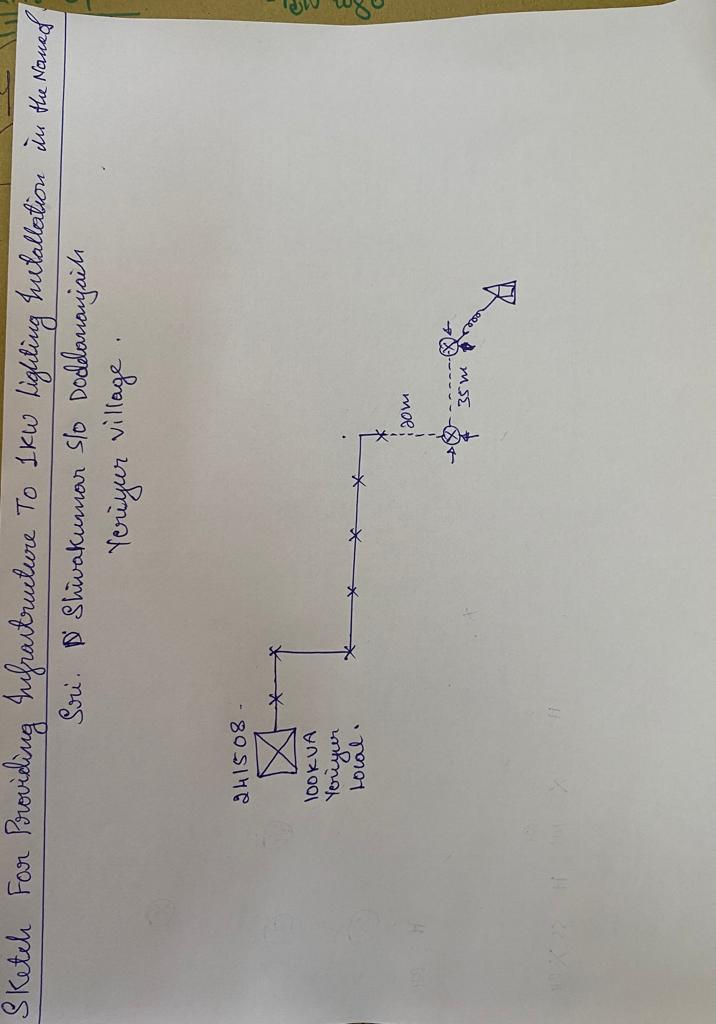 Sketch For Providing Infrastructure To 1KW Lighting Installation in the Name of
Sri. D Shivakumar S/o Doddananjaih
Yeriyur Village.
241508.
100KVA
Yeriyur
Local.
20m
35m